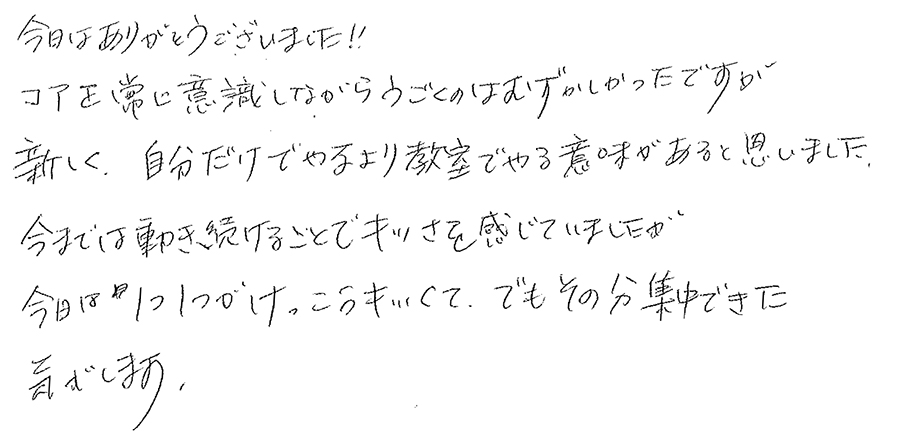 今日はありがとうございました!!
コアを常に意識しながらうごくのはむずかしかったですが
新しく、自分だけでやるより教室でやる意味があると思いました。
今までは動き続けることでキツさを感じていましたが
今日は1つ1つがけっこうキツくて、でもその分集中できた
気がします。